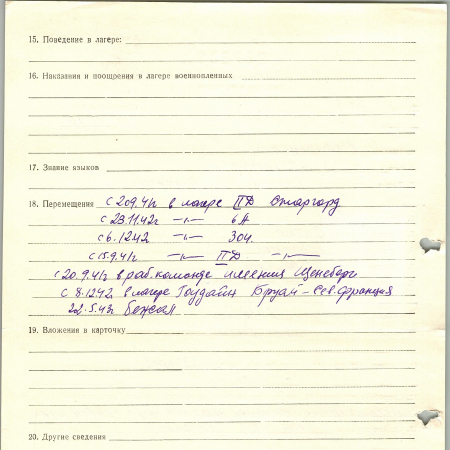 15. Поведение в лагере:
16. Наказания и поощрения в лагере военнопленных
17. Знание языков
18. Перемещения с 20.9.41г в лагере II Д Штаргард
с 23.11.42г —„— 6 А
с 6.12.42 —„— 304.
с 15.9.41г —„— II Д —„—
с 20.9.41г в раб. команде имения Щенеберг
с 8.12.42 в лагере Гоудайн Бруай - Сев. Франция
22.5.43г Бежал
19. Вложения в карточку
20. Другие сведения